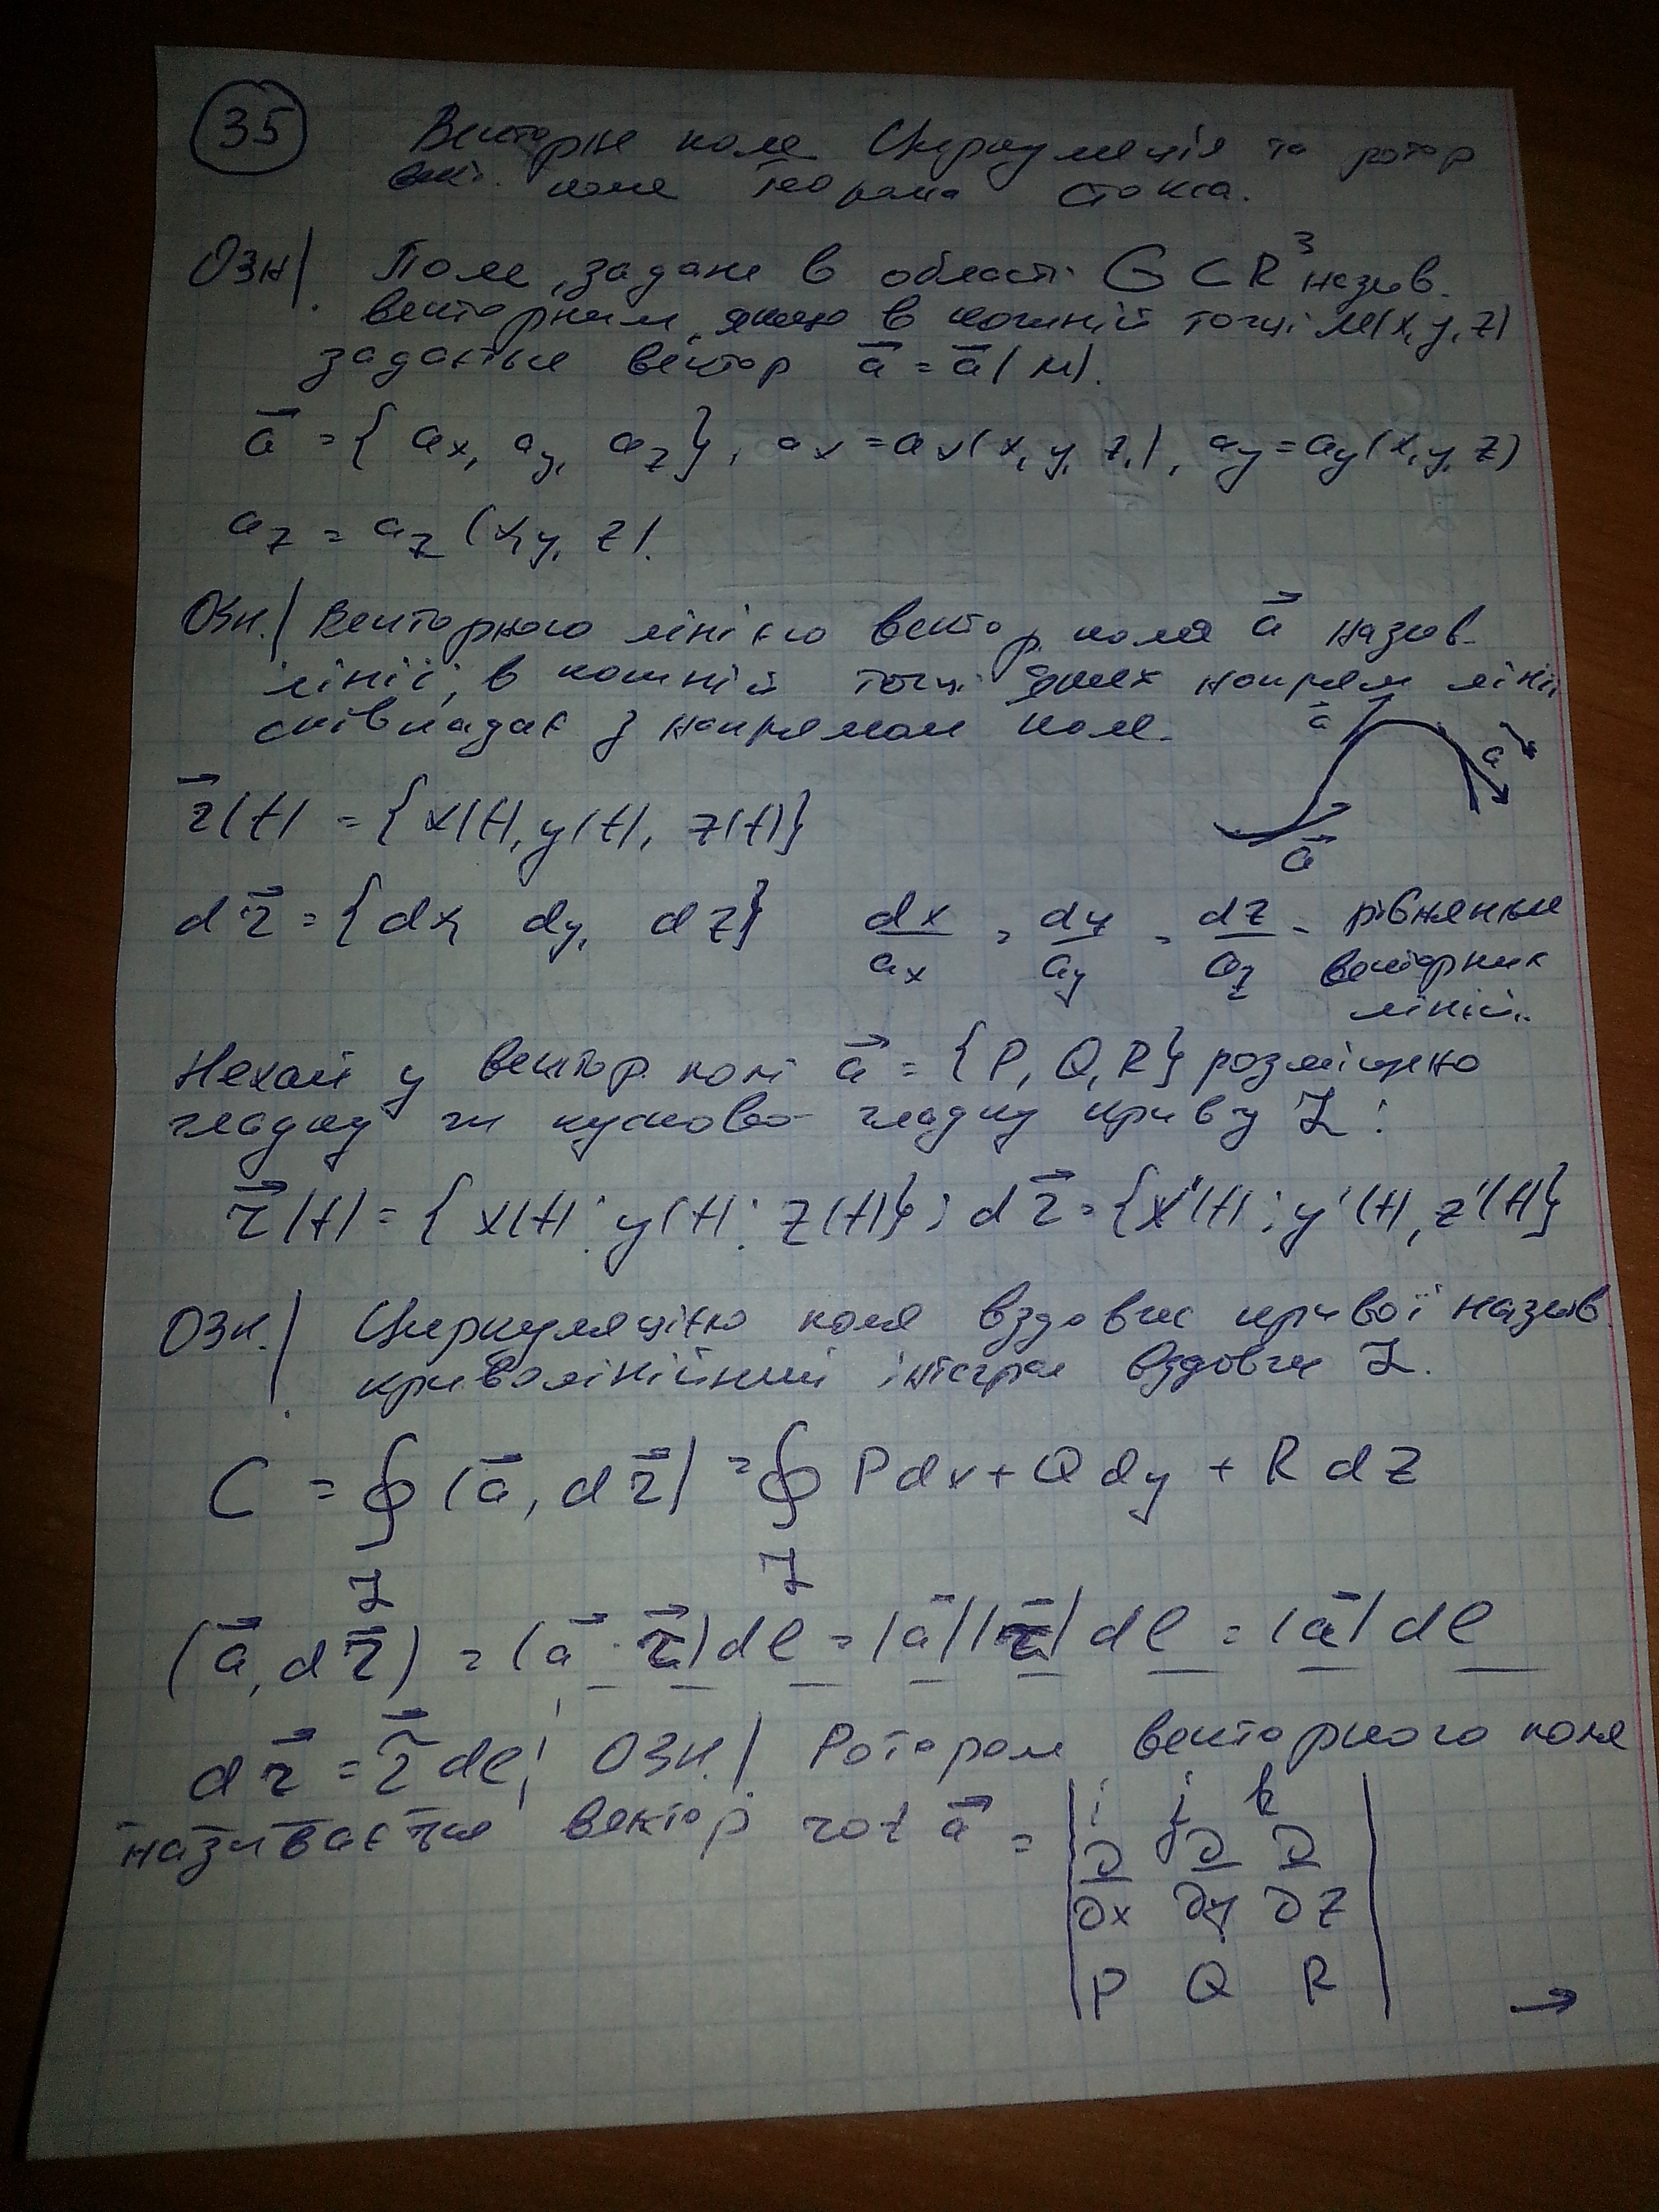 35
Векторне поле Циркуляція та ротор
век. поля Теорема Стокса.
Озн/ Поле, задане в області G ⊂ R³ назив.
векторним, якщо в кожній точці M(x, y, z)
задається вектор a⃗ = a⃗(M).
a⃗ = {ax, ay, az}, ax = ax(x, y, z), ay = ay(x, y, z)
az = az(x, y, z).
Озн./ Векторною лінією вектор. поля a⃗ назив.
лінії, в кожній точці яких напрям лінії
співпадає з напрямом поля.
a⃗
a⃗
a⃗
r⃗(t) = {x(t), y(t), z(t)}
dr⃗ = {dx, dy, dz} dx/ax = dy/ay = dz/az - рівняння
векторних
ліній.
Нехай у вектор. полі a⃗ = {P, Q, R} розміщено
гладку чи кусково-гладку криву L:
r⃗(t) = {x(t); y(t); z(t)}; dr⃗ = {x'(t); y'(t), z'(t)}
Озн./ Циркуляцією поля вздовж кривої назив.
криволінійний інтеграл вздовж L.
C = ∮ (a⃗, dr⃗) = ∮ Pdx + Qdy + Rdz
L L
(a⃗, dr⃗) = (a⃗ · τ⃗)dl = |a⃗||τ⃗|dl = |a⃗|dl
dr⃗ = τ⃗ dl; Озн./ Ротором векторного поля
називається вектор rot a⃗ = | i j k
∂/∂x ∂/∂y ∂/∂z
P Q R |
→